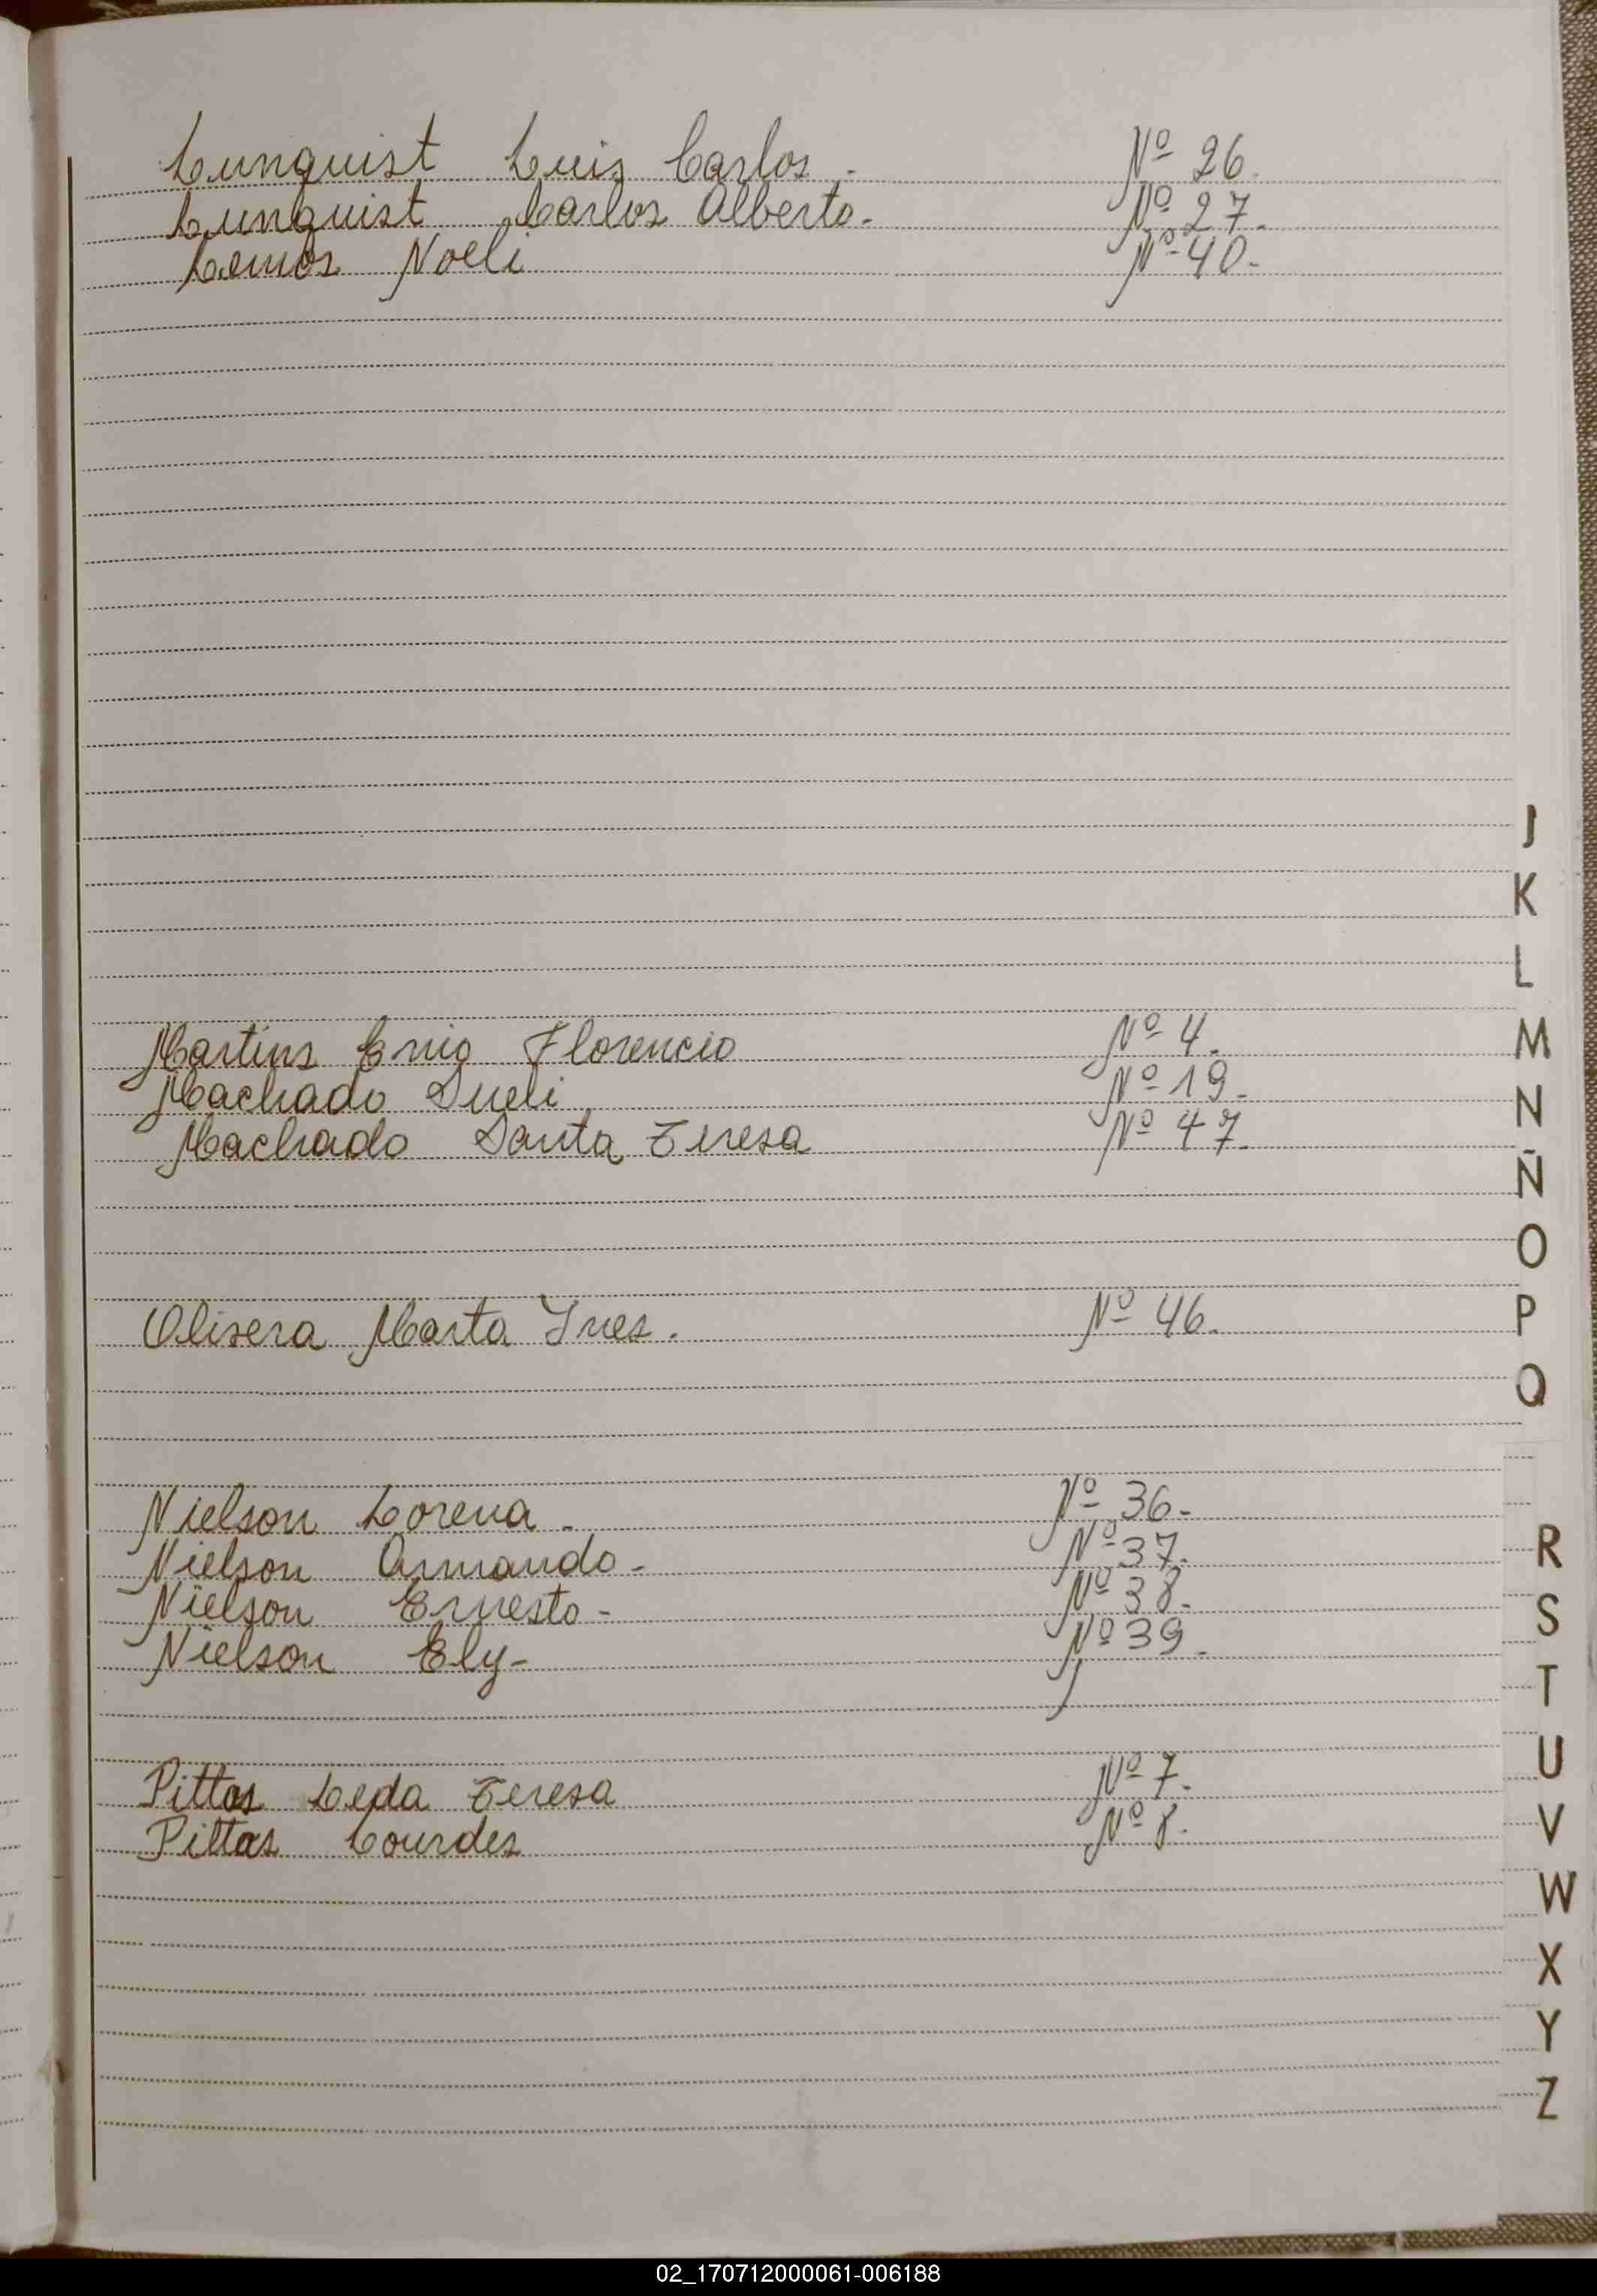 Lunquist Luis Carlos. Nº 26.
Lunquist Carlos Alberto. Nº 27.
Lemos Noeli Nº 40.
Martins Enio Florencio Nº 4.
Machado Sueli Nº 19.
Machado Santa Teresa Nº 47.
Olisera Marta Ines. Nº 46.
Nielson Lorena - Nº 36-
Nielson Armando - Nº 37.
Nielson Ernesto - Nº 38.
Nielson Ely - Nº 39.
Pittas Leda Teresa Nº 7.
Pittas Lourdes Nº 8.
J
K
L
M
N
Ñ
O
P
Q
R
S
T
U
V
W
X
Y
Z
02_170712000061-006188